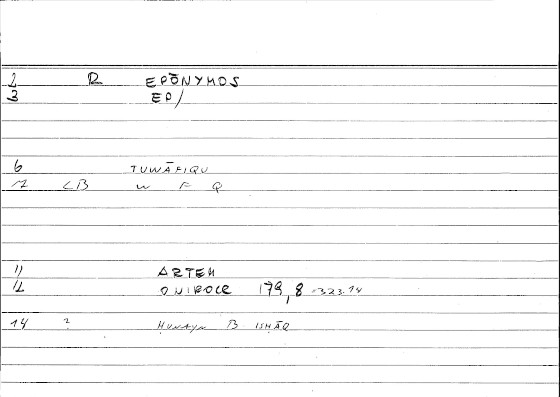 2 R EPŌNYMOS
3 EP/
6 TUWĀFIQU
7 <B W F Q
11 ARTEM
12 ONIROCR 179,8 = 323.14
14 2 ḤUNAYN B ISḤĀQ